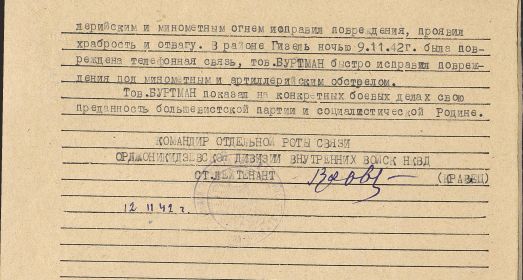 лерийским и минометным огнем исправил повреждения, проявил
храбрость и отвагу. В районе Гизель ночью 9.11.42г. была пов-
реждена телефонная связь, тов.БУРТМАН быстро исправил повреж-
дения под минометным и артиллерийским обстрелом.
Тов.БУРТМАН показал на конкретных боевых делах свою
преданность большевистской партии и социалистической Родине.
КОМАНДИР ОТДЕЛЬНОЙ РОТЫ СВЯЗИ
ОРДЖОНИКИДЗЕВСКОЙ ДИВИЗИИ ВНУТРЕННИХ ВОЙСК НКВД
СТ.ЛЕЙТЕНАНТ (КРАВЕЦ)
12 11 42 г.